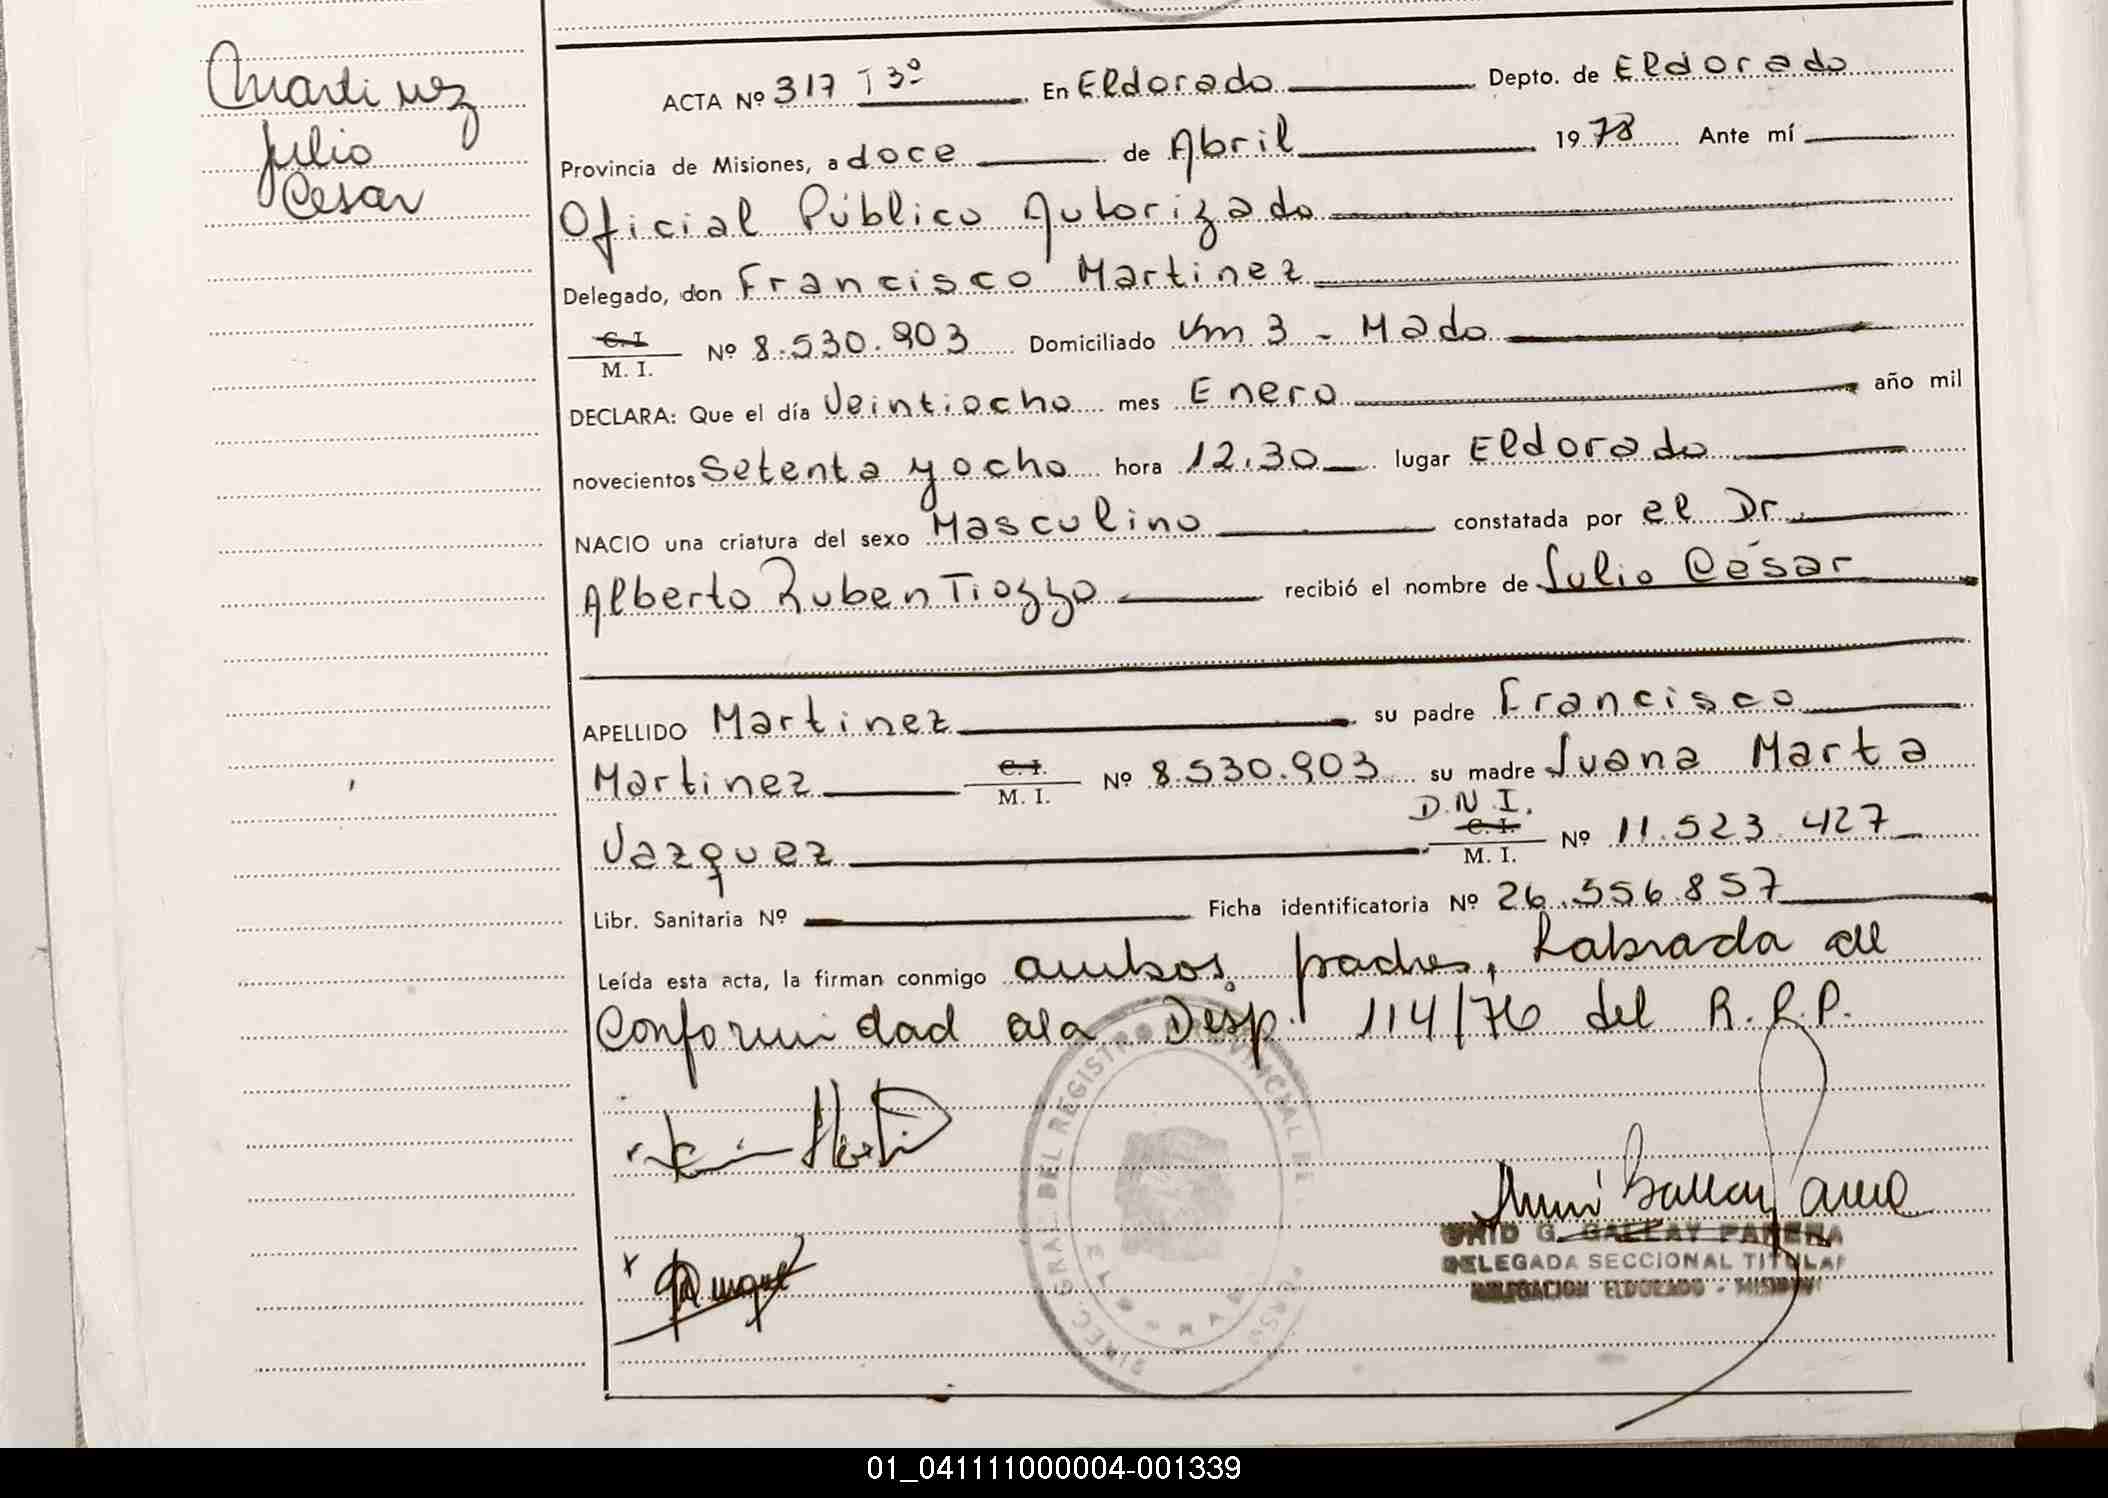 Martinez
Julio
Cesar
ACTA Nº 317 T 3º En Eldorado Depto. de Eldorado
Provincia de Misiones, a doce de Abril 1978 Ante mí
Oficial Público Autorizado
Delegado, don Francisco Martinez
C.I
M. I. Nº 8.530.903 Domiciliado Km 3 - Mado
DECLARA: Que el día Veintiocho mes Enero año mil
novecientos Setenta y ocho hora 12.30 lugar Eldorado
NACIO una criatura del sexo Masculino constatada por el Dr.
Alberto Ruben Tiozzo recibió el nombre de Julio César
APELLIDO Martinez su padre Francisco
Martinez C. I. M. I. Nº 8.530.903 su madre Juana Marta
D.N.I.
Vazquez C. I. M. I. Nº 11.523.427
Libr. Sanitaria Nº Ficha identificatoria Nº 26.556.857
Leída esta acta, la firman conmigo ambos padres, Labrada de
Conformidad a la Desp. 114/76 del R.R.P.
DIREC. GRAL. DEL REGISTRO PROVINCIAL DE
G. GALLAY PARERA
DELEGADA SECCIONAL TITULAR
DELEGACION ELDORADO - MISIONES
01_041111000004-001339